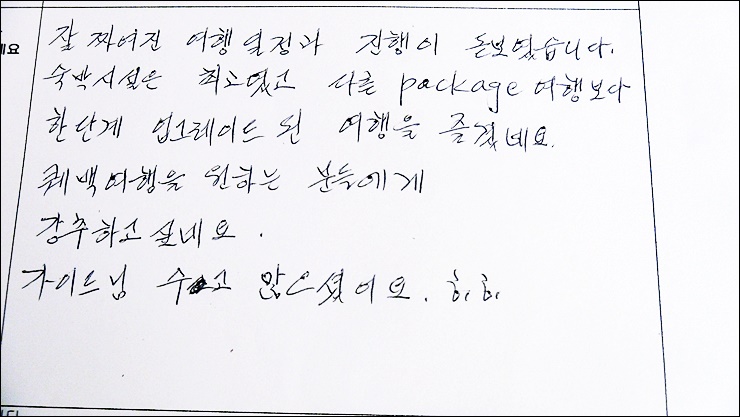 세요
잘 짜여진 여행일정과 진행이 돋보였습니다.
숙박시설은 최고였고 다른 package 여행보다
한단계 업그레이드 된 여행을 즐겼네요.
퀘백여행을 원하는 분들에게
강추하고 싶네요.
가이드님 수고 많으셨어요. 히.히.